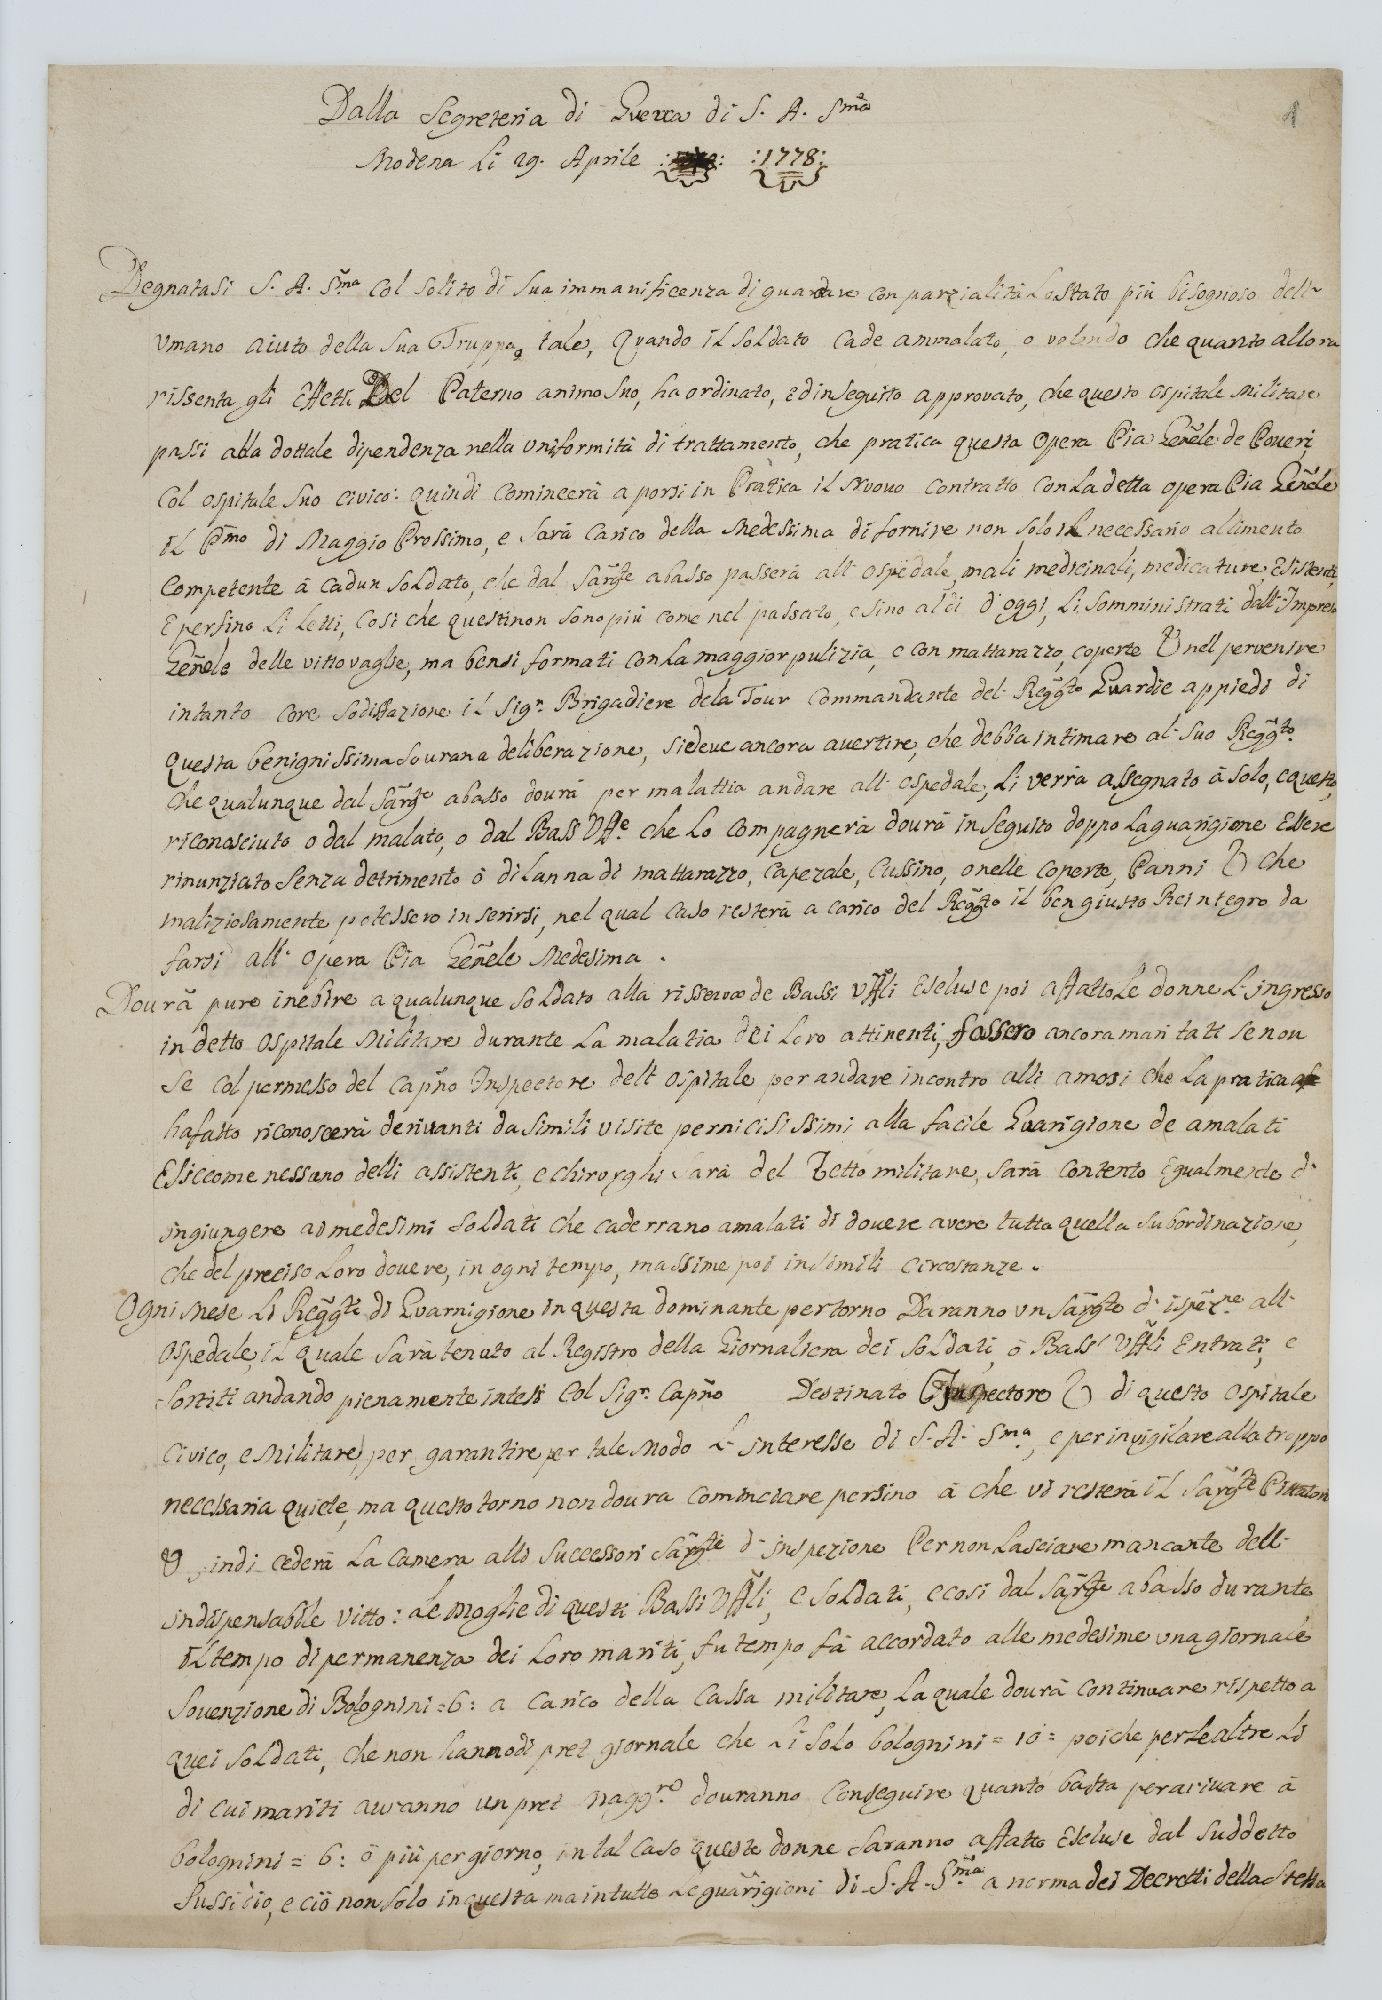 1
Dalla Segreteria di Guerra di S. A. Sma
Modena li 29. Aprile :1778:
Degnatasi S. A. Sma col solito di sua immanificenza di guardare con parzialità lo stato più bisognoso dell'
umano aiuto della sua Truppa, tale, quando il soldato cade ammalato, o volendo che quanto allora
rissenta gli effetti Del Paterno animo suo, ha ordinato, ed in seguito approvato, che questo ospitale Militare
passi alla dottale dipendenza nella uniformità di trattamento, che pratica questa Opera Pia Genẽle de Poveri,
col ospitale suo civico: quindi comincerà a porsi in Pratica il Nuovo contratto con la detta opera Pia Genẽle
il Pm̃o di Maggio Prossimo, e sarà carico della Medessima di fornire non solo il necessario allimento
competente à cadun soldato, che dal Sargte abasso passerà all' ospedale, mali medicinali, medicature, Esistenti,
e persino li letti, così che questi non sono più come nel passato, e sino al dì d'oggi, li somministrati dall' Impresa
Genẽle delle vittovaglie, ma bensi formati con la maggior pulizia, e con mattarazzo, coperte & nel pervenire
intanto core sodisfazione il Sigr. Brigadiere dela Tour Commandante del Reggto Guardie appiedi di
questa benignissima sovrana deliberazione, si deve ancora avertire, che debba intimare al suo Reggto.
che qualunque dal Sargte abasso dovrà per malattia andare all' ospedale, li verrà assegnato à solo, e questo,
riconosciuto o dal malato, o dal Bass Uffe che lo compagnerà dovrà in seguito doppo la guarigione Essere
rinunziato senza detrimento ò di lanna di mattarazzo, capezale, cussino, o nelle coperte, Panni & che
maliziosamente potessero inserirsi, nel qual caso resterà a carico del Reggto il ben giusto Reintegro da
farsi all' opera Pia Genẽle Medesima.
Dovrà pure inebire a qualunque soldato alla risserva de Bassi Uffli escluse poi affatto le donne l'ingresso
in detto ospitale Militare durante la malatia dei loro attinenti, fossero ancora maritati se non
se col permesso del Capño Inspectore dell ospitale per andare incontro alli amosi che la pratica
ha fatto riconoscerà derivanti da simili visite pernicisissimi alla facile Guarigione de amalati
E siccome nessuno delli assistenti, e chirurghi sarà del Tetto militare, sarà contento egualmente d'
ingiungere a medesimi soldati che caderrano amalati di dovere avere tutta quella subordinazione,
che del preciso loro dovere, in ogni tempo, massime poi in simili circostanze.
Ogni Mese li Reggti di Guarnigione in questa dominante per torno Daranno un Sargte d' ispez̃ne all'
ospedale, il quale sarà tenuto al Registro della Giornaliera dei soldati, ò Bassi Uffli Entrati, e
sortiti andando pienamente intesi col Sigr. Capño Destinato Inspectore & di questo ospitale
civico, e Militare per garantire per tale Modo l' interesse di S. A. Sma, e per invigilare alla troppo
necessaria quiete, ma questo torno non dovra cominciare persino à che vi resterà il Sargte
indi cederà la camera alli successori Sargti d' inspezione Per non lasciare mancante dell'
indispensabile vitto: ale Moglie di questi Bassi Uffli, e soldati, e così dal Sargte abasso durante
il tempo di permanenza dei loro mariti, fu tempo fà accordato alle medesime una giornale
sovenzione di Bolognini =6: a carico della Cassa militare, la quale dovrà continuare rispetto a
quei soldati, che non hanno di pret giornale che li solo bolognini = 10 = poiche per le altre li
di cui mariti avranno un pret Maggre dovranno conseguire quanto basta per arivare à
bolognini = 6: ò più per giorno, in tal caso queste donne saranno affatto escluse dal suddetto
sussidio, e ciò non solo in questa ma in tutte le guarigioni di S. A. Sma a norma dei Decretti della stessa